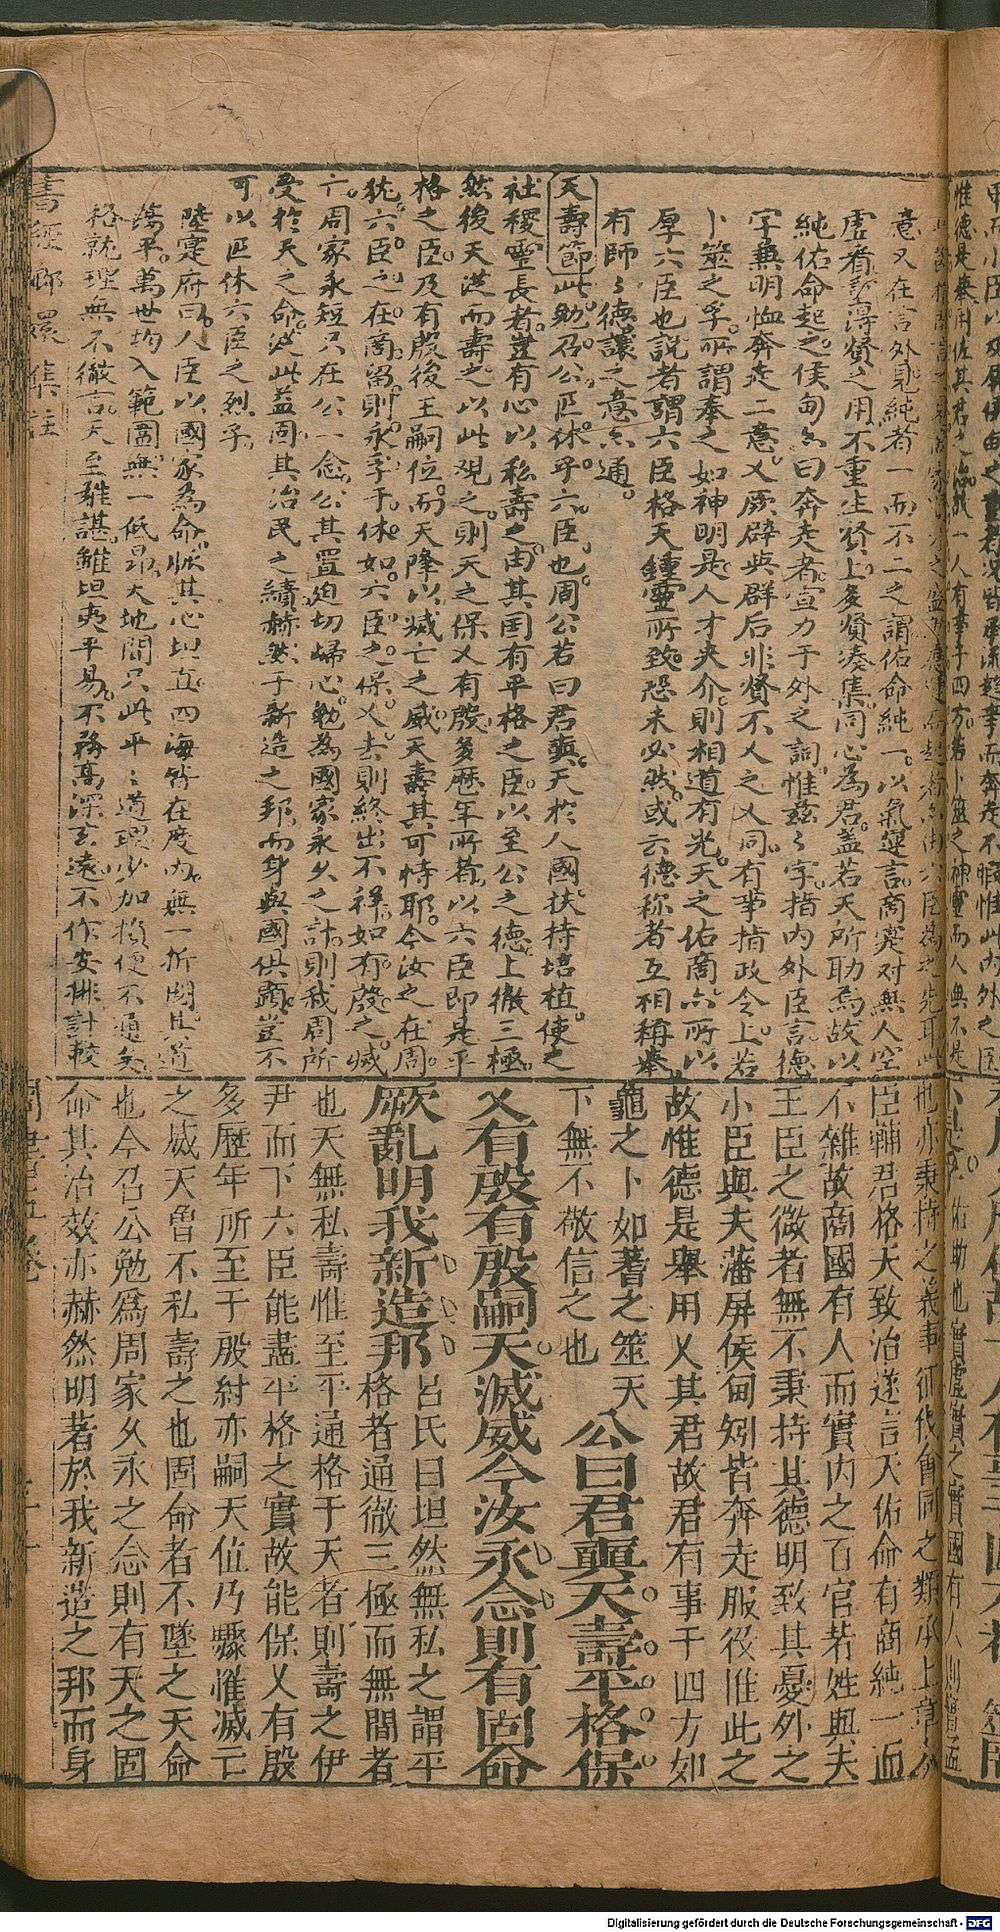 意又在言外見純者一而不二之謂佑命純一以氣運言商實对無人空
虛看說得賢之用不重生賢上多賢湊集同心為君蓋若天所助焉故以
純佑命起之侯甸亦曰奔走者宣力于外之詞惟茲々字指内外臣言德
字兼明恤奔走二意乂厥辟與群后非賢不乂之乂同有事指政令上若
卜筮之孚所謂奉之如神明是人才夹介則相道有光天之佑商亦所以
厚六臣也說者謂六臣格天鍾靈所致恐未必然或云德称者互相稱奉
有師々德讓之意亦通
天壽節此勉召公匹休乎六臣也周公若曰君奭天於人國扶持培植使之
社稷靈長者豈有心以私壽之由其国有平格之臣以至公之德上徹三極
然後天從而壽之以此观之則天之保乂有殷多歷年所者以六臣即是平
格之臣及有殷後王嗣位而天降以滅亡之威天壽其可恃耶今汝之在周
犹六臣之在商留則永孚于休如六臣之保乂去則終出不祥如有殷之滅
亡周家永短只在公一念公其置迫切歸心勉為國家永久之計則我周所
受於天之命從此益固其治民之績赫然于新造之邦而身與國俱顯豈不
可以匹休六臣之烈乎
陸寔府曰人臣以國家為命脈其心坦直四海皆在度内無一折閱其道
蕩平萬世均入範圍無一低昂天地間只此平々道理少加損便不通矣
格就理無不徹言天至難諶雖坦夷平易不務高深玄遠不作安排計較
也亦秉持之義事征伐會同之類承上章六
臣輔君格天致治遂言天佑命有商純一而
不雜故商國有人而實内之百官若姓與夫
王臣之微者無不秉持其德明致其憂外之
小臣與夫藩屏侯甸矧皆奔走服役惟此之
故惟德是舉用乂其君故君有事于四方如
龜之卜如蓍之筮天
下無不敬信之也 公曰君奭天壽平格保
乂有殷有殷嗣天滅威今汝永念則有固命
厥亂明我新造邦 呂氏曰坦然無私之謂平
格者通徹三極而無間者
也天無私壽惟至平通格于天者則壽之伊
尹而下六臣能盡平格之實故能保乂有殷
多歷年所至于殷紂亦嗣天位乃驟惟滅亡
之威天曾不私壽之也固命者不墜之天命
也今召公勉爲周家久永之念則有天之固
命其治效亦赫然明著於我新造之邦而身
書經郷嬛集註
周書五卷
Digitalisierung gefördert durch die Deutsche Forschungsgemeinschaft - DFG